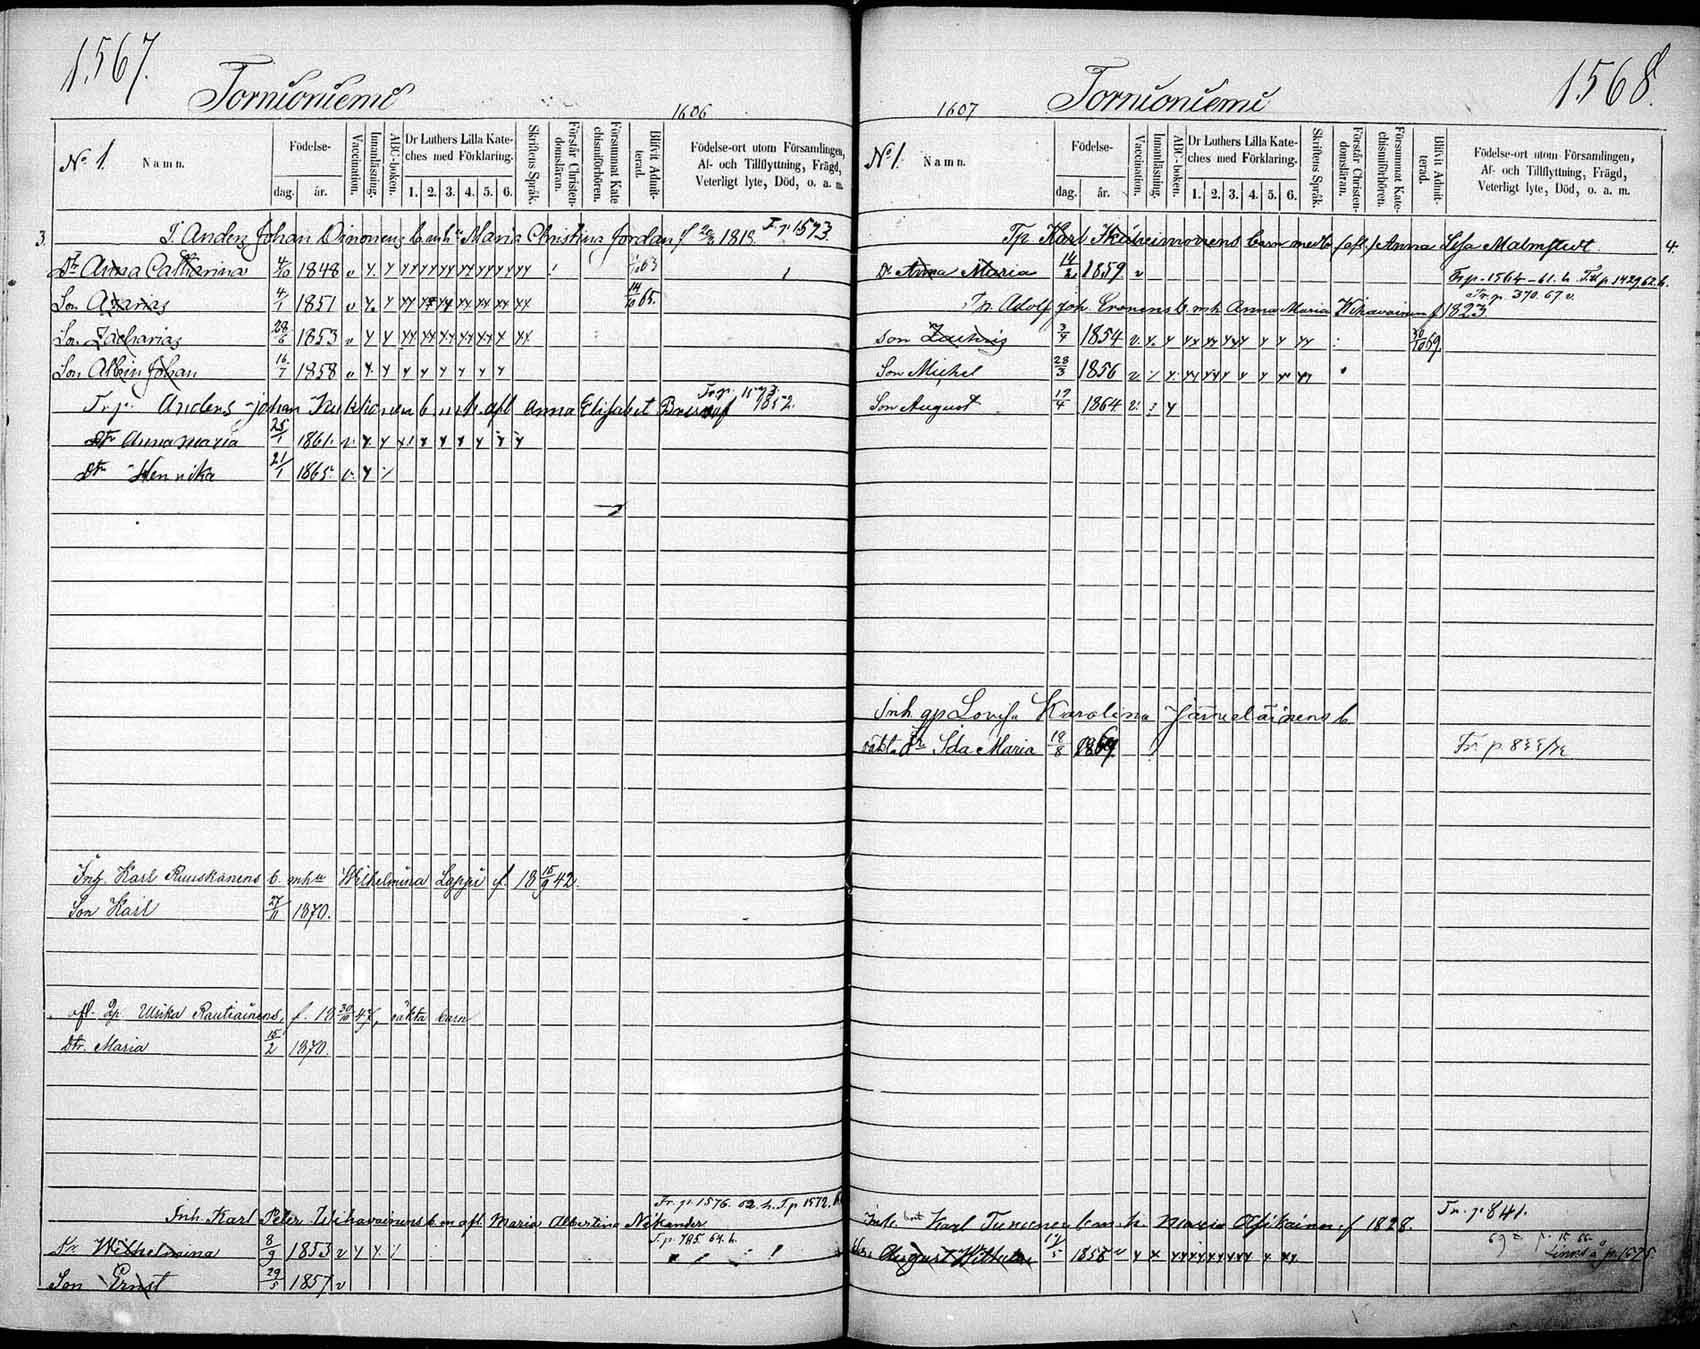 1567.
Torniöniemi
1606
No 1. Namn.
Födelse-
dag. år.
Vaccination.
Innanläsning.
ABC-boken.
Dr Luthers Lilla Kate-
ches med Förklaring.
1. 2. 3. 4. 5. 6.
Skriftens Språk.
Förstår Christen-
domsläran.
Försummat Kate
chismiförhören.
Blifvit Admit-
terad.
Födelse-ort utom Församlingen,
Af- och Tillflyttning, Frägd,
Veterligt lyte, Död, o. a. m.
3. Anders Johan b. mh Maria Christina Jordan f 1818 Fr. p. 1573.
Dr Anna Catharina 4/10 1848 v 63
Son Azarias 4/1 1851 v 14/10 65.
Son Zacharias 28/6 1853 v
Son Albin Johan 16/7 1858 v
Fr. p. 1573.
Anders Johan b. m. h. afl Anna Elisabet 1852.
Dtr Anna Maria 25/1 1861. v.
Dtr Henrika 21/1 1865. v.
Inh. Karl Ruuskanens b. mhu Wilhelmina Lappi f. 18 15/9 42.
Son Karl 27/11 1870.
afl. Ulrika Rautiainens, f. 18 47, oäkta barn
Dtr. Maria 15/2 1870.
Fr. p. 1576. 62. h. T p 1572.
Inh. Karl Peter Wihavainens b m afl. Maria Albertina Nykander
T. p. 785 64. h.
Dr Wilhelmina 8/9 1853 v
Son Ernst 29/5 1857 v
1568.
Torniöniemi
1607
No 1. Namn.
Födelse-
dag. år.
Vaccination.
Innanläsning.
ABC-boken.
Dr Luthers Lilla Kate-
ches med Förklaring.
1. 2. 3. 4. 5. 6.
Skriftens Språk.
Förstår Christen-
domsläran.
Försummat Kate-
chismiförhören.
Blifvit Admit-
terad.
Födelse-ort utom Församlingen,
Af- och Tillflyttning, Frägd,
Veterligt lyte, Död, o. a. m.
Tp Karl Ikäheimonens barn med b (afl.) Anna Lisa Malmstedt 4.
Dr Anna Maria 14/2 1859 v Fr p. 1564 – 61. h. T p 1429 62. h.
Fr. p. 370. 67. v.
Adolf Joh. Eronens b. mh Anna Maria Wihavainen f 1823
Son 3/4 1854 v. 30/10 69
Son Michel 28/3 1856 v.
Son August 17/4 1864 v.
Inh. gp Lovisa Karolina Jämeläinens b
oäkt. dr Ida Maria 18/8 1869 Fr. p. 8
Fr. p. 841.
Inh. Karl Turunen b m. h. Maria Asikainen f 1828.
August Wilhelm 17/5 1858 v
69 p. 15 66.
finnes å p. 1575